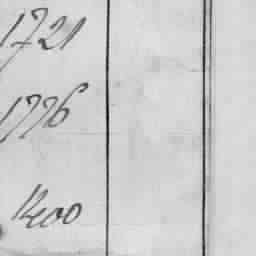 1721
1776
1400